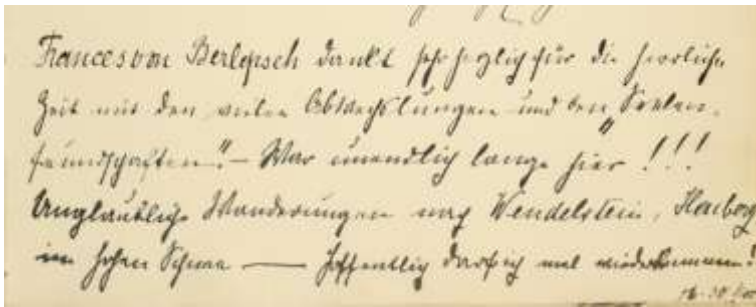 Frances von Berlepsch dankt sehr herzlich für die herrliche
Zeit mit den vielen Abwechslungen und den „Seelen-
freundschaften“! – War unendlich lange hier!!!
Unglaubliche Wanderungen nach Wendelstein,
im hohen Schnee — hoffentlich darf ich mal wiederkommen!